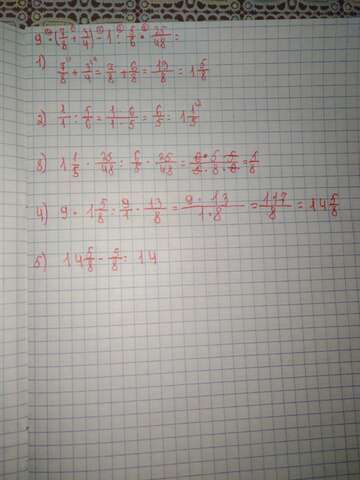 9 · (7/8 + 3/4) - 1 : 5/6 · 25/48 =
1) 7/8 + 3/4 = 7/8 + 6/8 = 13/8 = 1 5/8
2) 1/1 : 5/6 = 1 · 6/1 · 5 = 6/5 = 1 1/5
3) 1 1/5 · 25/48 = 6/5 · 25/48 = 6 · 5 · 5/5 · 8 · 6 = 5/8
4) 9 · 1 5/8 = 9/1 · 13/8 = 9 · 13/1 · 8 = 117/8 = 14 5/8
5) 14 5/8 - 5/8 = 14